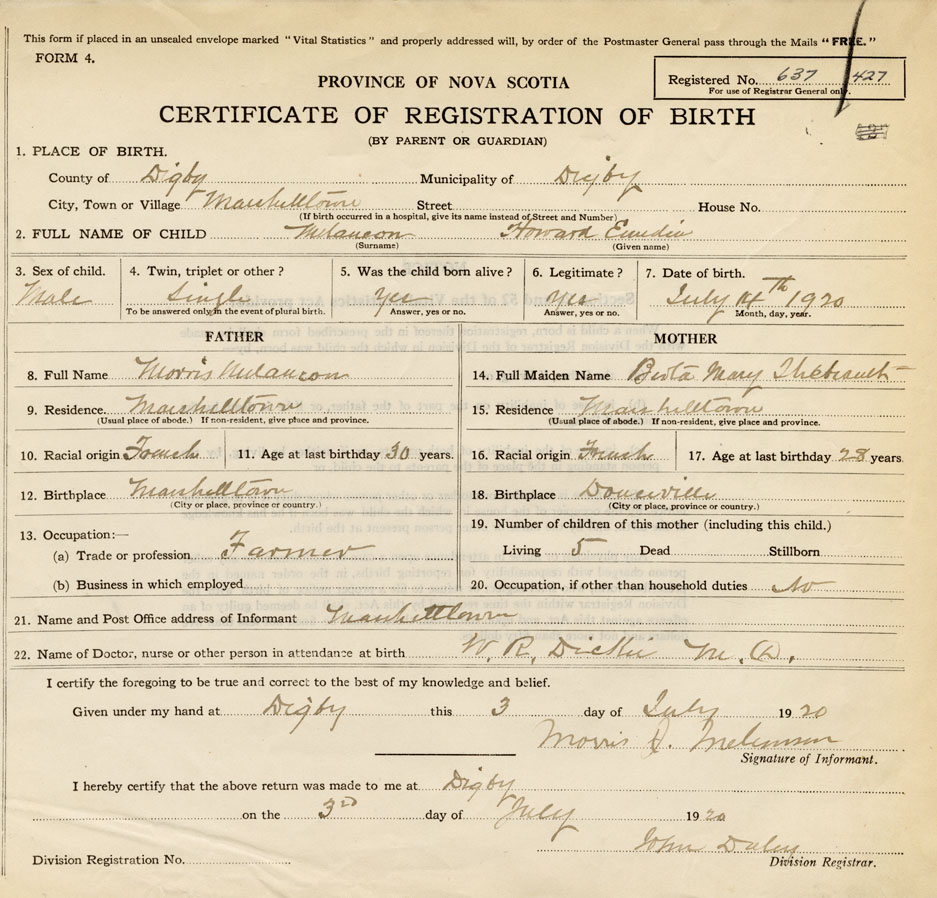 This form if placed in an unsealed envelope marked "Vital Statistics" and properly addressed will, by order of the Postmaster General pass through the Mails "FREE."
FORM 4.
Registered No. 637 427
For use of Registrar General only.
PROVINCE OF NOVA SCOTIA
CERTIFICATE OF REGISTRATION OF BIRTH
(BY PARENT OR GUARDIAN)
1. PLACE OF BIRTH.
County of Digby Municipality of Digby
City, Town or Village Marshelltown Street House No.
(If birth occurred in a hospital, give its name instead of Street and Number)
2. FULL NAME OF CHILD Melancon Howard
(Surname) (Given name)
3. Sex of child. 4. Twin, triplet or other? 5. Was the child born alive? 6. Legitimate? 7. Date of birth.
Male Single Yes Yes July 14th 1920
To be answered only in the event of plural birth. Answer, yes or no. Answer, yes or no. Month, day, year.
FATHER MOTHER
8. Full Name Morris Melancon 14. Full Maiden Name Berta Mary Thebeault
9. Residence. Marshelltown 15. Residence Marshelltown
(Usual place of abode.) If non-resident, give place and province. (Usual place of abode.) If non-resident, give place and province.
10. Racial origin French 11. Age at last birthday 30 years. 16. Racial origin French 17. Age at last birthday 28 years.
12. Birthplace Marshelltown 18. Birthplace
(City or place, province or country.) (City or place, province or country.)
13. Occupation:— 19. Number of children of this mother (including this child.)
(a) Trade or profession Farmer Living 5 Dead Stillborn
(b) Business in which employed 20. Occupation, if other than household duties No
21. Name and Post Office address of Informant Marshelltown
22. Name of Doctor, nurse or other person in attendance at birth W. R. Dickie M. D.
I certify the foregoing to be true and correct to the best of my knowledge and belief.
Given under my hand at Digby this 3 day of July 1920
Morris J. Melanson
Signature of Informant.
I hereby certify that the above return was made to me at Digby
on the 3rd day of July 1920
John Daley
Division Registration No. Division Registrar.